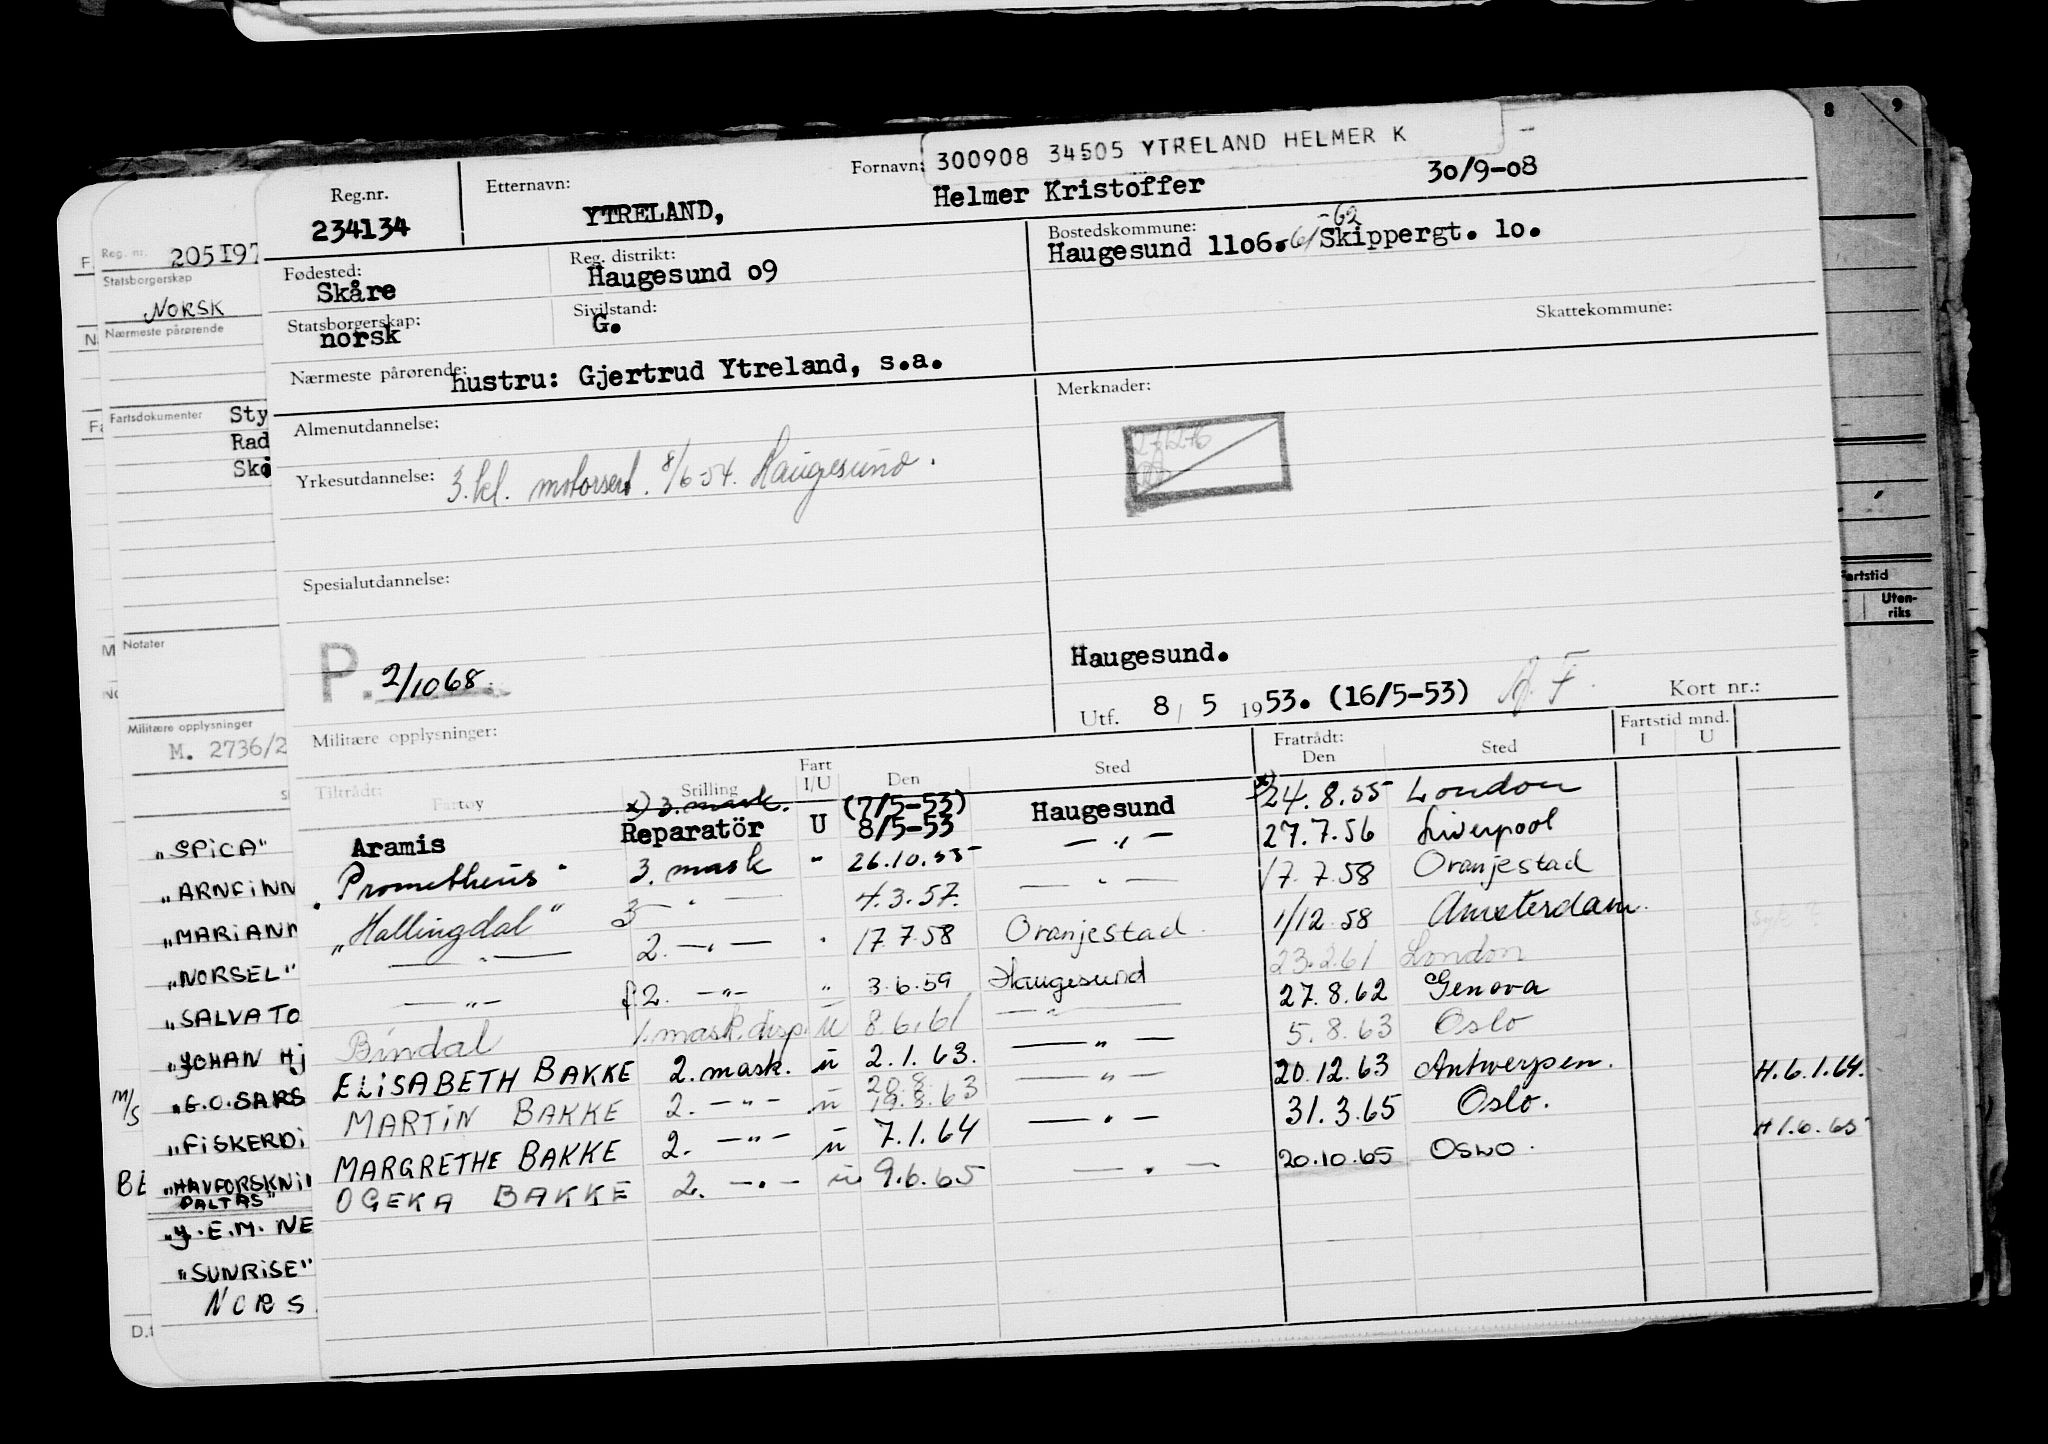 300908 34505 YTRELAND HELMER K
Reg.nr. 234134
Etternavn: YTRELAND,
Fornavn: Helmer Kristoffer 30/9-08
Fødested: Skåre
Reg. distrikt: Haugesund o9
Bostedskommune: -62
Haugesund 11o6. 61 Skippergt. 1o.
Statsborgerskap: norsk
Sivilstand: G.
Skattekommune:
Nærmeste pårørende: hustru: Gjertrud Ytreland, s.a.
Merknader:
Almenutdannelse:
Yrkesutdannelse: 3. kl. motorsert. 8/6-54. Haugesund.
Spesialutdannelse:
P. 2/10 68.
Haugesund.
Utf. 8/ 5 1953. (16/5-53)
Kort nr.:
Militære opplysninger:
Tiltrådt: Fartøy Stilling Fart I/U Den Sted Fratrådt: Den Sted Fartstid mnd. I U
x) 3. mask. (7/5-53) x) 24.8.55 London
Aramis Reparatör U 8/5-53 Haugesund 27.7.56 Liverpool
"Prometheus" 3. mask " 26.10.55 — " — 17.7.58 Oranjestad
"Hallingdal" 3 — " — 4.3.57. — " — 1/12.58 Amsterdam.
— " — 2. — " — " 17.7.58 Oranjestad 23.2.61 London
— " — f.2. — " — " 3.6.59 Haugesund 27.8.62 Genova
Bindal 1. mask. disp. U 8.6.61 — " — 5.8.63 Oslo
ELISABETH BAKKE 2. mask. u 2.1.63. — " — 20.12.63 Antwerpen. H.6.1.64.
MARTIN BAKKE 2. — " — u 20.8 19.8.63 — " — 31.3.65 Oslo.
MARGRETHE BAKKE 2. — " — u 7.1.64 — " — 20.10.65 OSLO. H 1.6.65
OGEKA BAKKE 2. — " — u 9.6.65 — " —
Reg. nr. 205197
Statsborgerskap
NORSK
Nærmeste pårørende
Fartsdokumenter Sty
Rad
Notater
Militære opplysninger
M. 2736/2
"SPICA"
"ARNFINN
"MARIANN
"NORSEL"
"SALVATO
"JOHAN Hj
M/S "G.O.SARS
"FISKERDI
"HAVFORSKNI
PALTAS"
"J.E.M. NE
"SUNRISE"
NORS
8 9
Fartstid
Uten-
riks